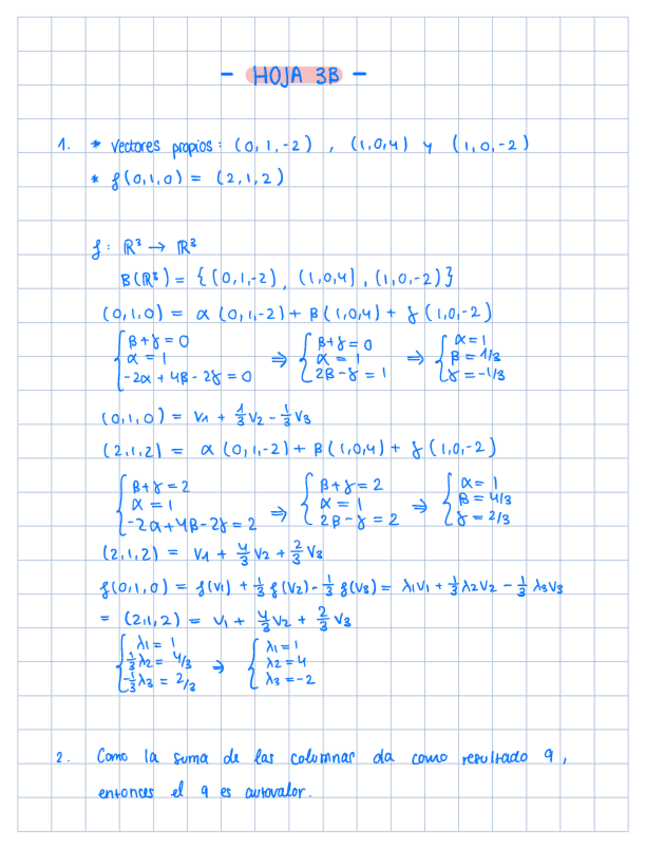 - HOJA 3B -
1. * Vectores propios: (0,1,-2) , (1,0,4) y (1,0,-2)
* f(0,1,0) = (2,1,2)
f: ℝ³ → ℝ³
B(ℝ³) = {(0,1,-2), (1,0,4), (1,0,-2)}
(0,1,0) = α(0,1,-2) + β(1,0,4) + γ(1,0,-2)
{β+γ=0 ⇒ {β+γ=0 ⇒ {α=1
α=1 α=1 β=1/3
-2α+4β-2γ=0 2β-γ=1 γ=-1/3
(0,1,0) = v1 + 1/3 v2 - 1/3 v3
(2,1,2) = α(0,1,-2) + β(1,0,4) + γ(1,0,-2)
{β+γ=2 ⇒ {β+γ=2 ⇒ {α=1
α=1 α=1 β=4/3
-2α+4β-2γ=2 2β-γ=2 γ=2/3
(2,1,2) = v1 + 4/3 v2 + 2/3 v3
f(0,1,0) = f(v1) + 1/3 f(v2) - 1/3 f(v3) = λ1v1 + 1/3 λ2v2 - 1/3 λ3v3
= (2,1,2) = v1 + 4/3 v2 + 2/3 v3
{λ1=1 ⇒ {λ1=1
1/3 λ2=4/3 λ2=4
-1/3 λ3=2/3 λ3=-2
2. Como la suma de las columnas da como resultado 9,
entonces el 9 es autovalor.